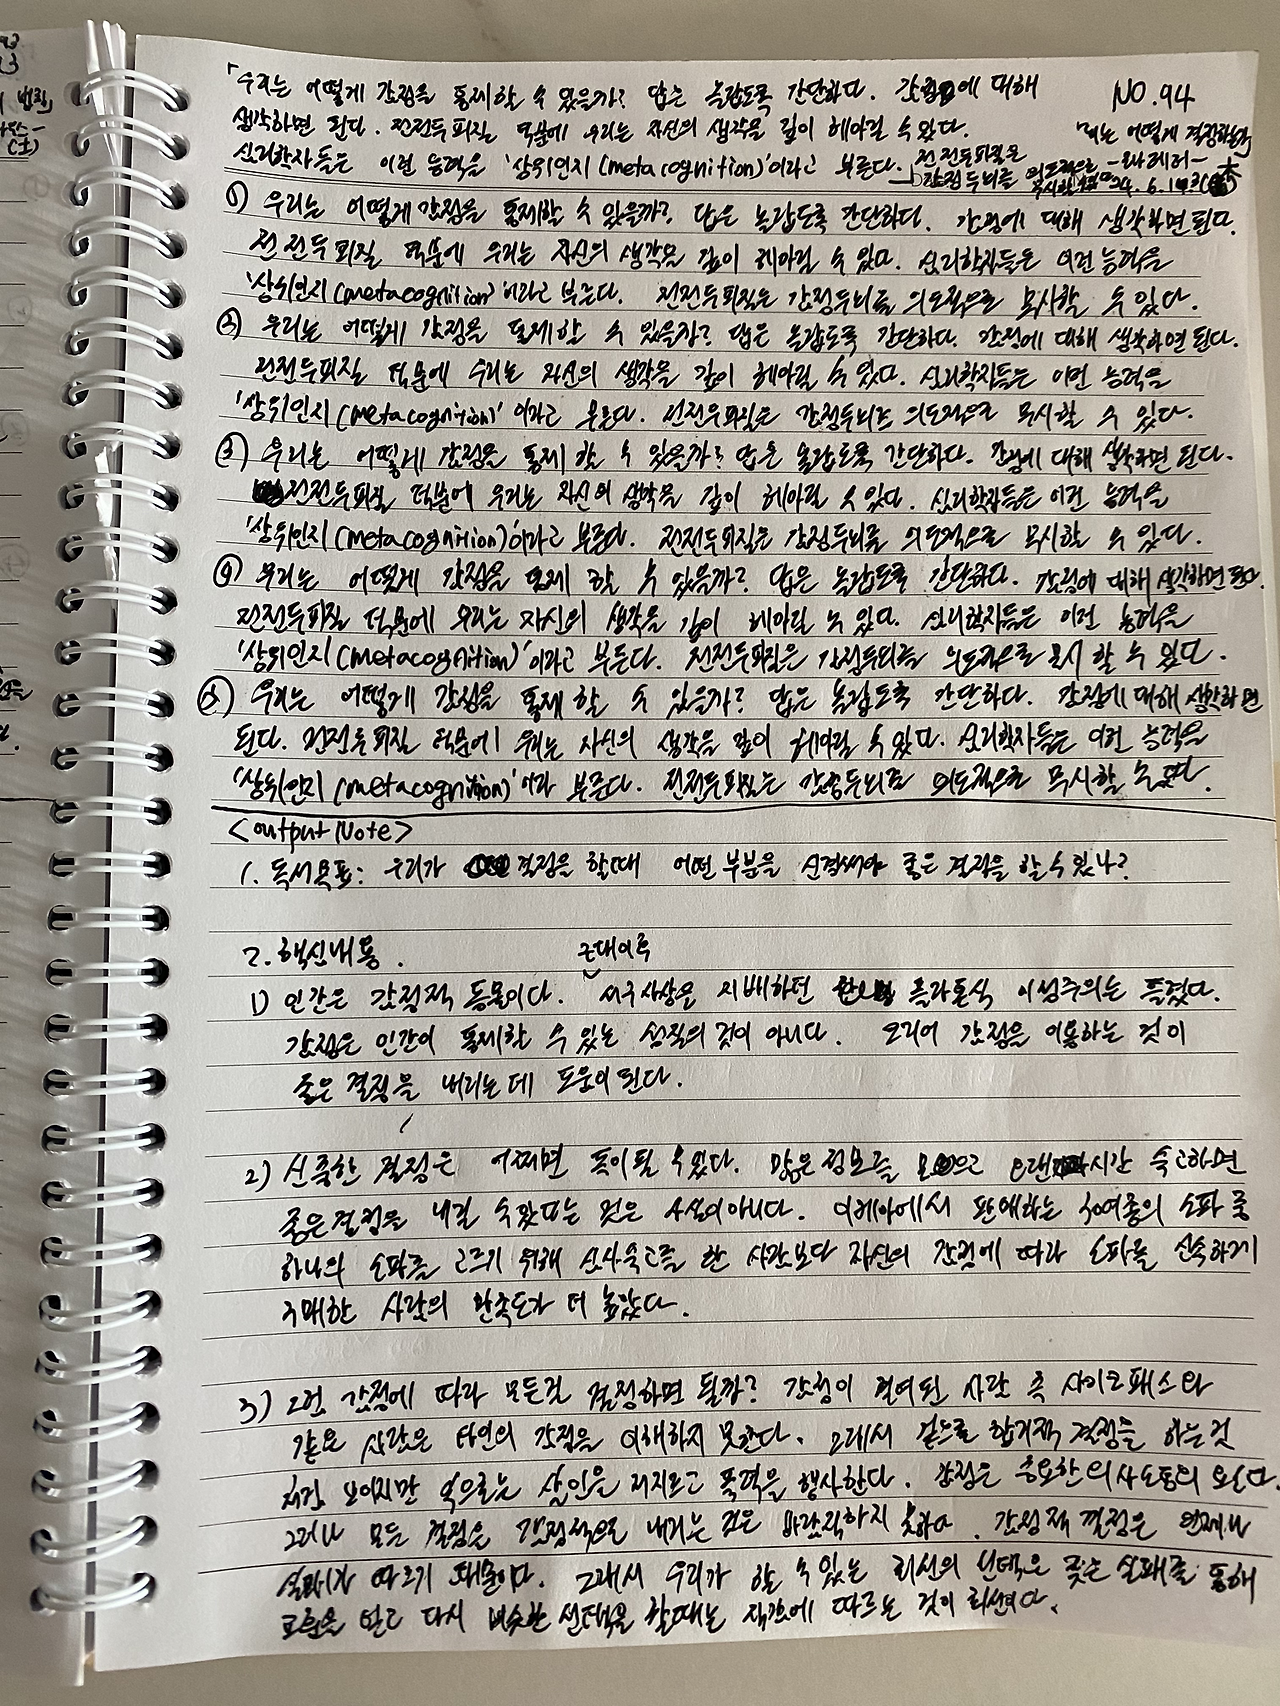 「우리는 어떻게 감정을 통제할 수 있을까? 답은 놀랍도록 간단하다. 감정에 대해
NO.94
생각하면 된다. 전전두피질 덕분에 우리는 자신의 생각을 깊이 헤아릴 수 있다.
뇌는 어떻게 결정하는가
심리학자들은 이런 능력을 '상위인지(metacognition)'이라고 부른다. 전전두피질은
-조나레러-
감정두뇌를 의도적으로
'24. 6.
① 우리는 어떻게 감정을 통제할 수 있을까? 답은 놀랍도록 간단하다. 감정에 대해 생각하면 된다.
전전두피질 덕분에 우리는 자신의 생각을 깊이 헤아릴 수 있다. 심리학자들은 이런 능력을
'상위인지(metacognition)'이라고 부른다. 전전두피질은 감정두뇌를 의도적으로 무시할 수 있다.
② 우리는 어떻게 감정을 통제할 수 있을까? 답은 놀랍도록 간단하다. 감정에 대해 생각하면 된다.
전전두피질 덕분에 우리는 자신의 생각을 깊이 헤아릴 수 있다. 심리학자들은 이런 능력을
'상위인지(metacognition)'이라고 부른다. 전전두피질은 감정두뇌를 의도적으로 무시할 수 있다.
③ 우리는 어떻게 감정을 통제할 수 있을까? 답은 놀랍도록 간단하다. 감정에 대해 생각하면 된다.
전전두피질 덕분에 우리는 자신의 생각을 깊이 헤아릴 수 있다. 심리학자들은 이런 능력을
'상위인지(metacognition)'이라고 부른다. 전전두피질은 감정두뇌를 의도적으로 무시할 수 있다.
④ 우리는 어떻게 감정을 통제 할 수 있을까? 답은 놀랍도록 간단하다. 감정에 대해 생각하면 된다.
전전두피질 덕분에 우리는 자신의 생각을 깊이 헤아릴 수 있다. 심리학자들은 이런 능력을
'상위인지(metacognition)'이라고 부른다. 전전두피질은 감정두뇌를 의도적으로 무시 할 수 있다.
⑤ 우리는 어떻게 감정을 통제 할 수 있을까? 답은 놀랍도록 간단하다. 감정에 대해 생각하면
된다. 전전두피질 덕분에 우리는 자신의 생각을 깊이 헤아릴 수 있다. 심리학자들은 이런 능력을
'상위인지(metacognition)'이라 부른다. 전전두피질은 감정두뇌를 의도적으로 무시할 수 있다.
<output Note>
1. 독서목표: 우리가 결정을 할때 어떤 부분을 신경써야 좋은 결정을 할 수 있나?
2. 핵심내용.
근대이후
1) 인간은 감정적 동물이다. 서구사상을 지배하던 플라톤식 이성주의는 틀렸다.
감정은 인간이 통제할 수 있는 성질의 것이 아니다. 오히려 감정을 이용하는 것이
좋은 결정을 내리는데 도움이 된다.
2) 신중한 결정은 어쩌면 독이될 수 있다. 많은 정보를 모으고 오랜시간 숙고하면
좋은결정을 내릴 수 있다는 것은 사실이 아니다. 이케아에서 판매하는 30여종의 소파 중
하나의 소파를 고르기 위해 심사숙고를 한 사람보다 자신의 감정에 따라 소파를 신속하게
구매한 사람의 만족도가 더 높았다.
3) 그럼 감정에 따라 모든걸 결정하면 될까? 감정이 결여된 사람 즉 사이코패스와
같은 사람은 타인의 감정을 이해하지 못한다. 그래서 겉으로 합리적 결정을 하는것
처럼 보이지만 속으로는 살인을 저지르고 폭력을 행사한다. 감정은 중요한 의사소통의 요인다.
그러나 모든 결정을 감정적으로 내리는 것은 바람직하지 못하다. 감정적 결정은 언제나
실패가 따르기 때문이다. 그래서 우리가 할 수 있는 최선의 선택은 잦은 실패를 통해
교훈을 얻고 다시 비슷한 선택을 할때는 직감에 따르는 것이 최선이다.